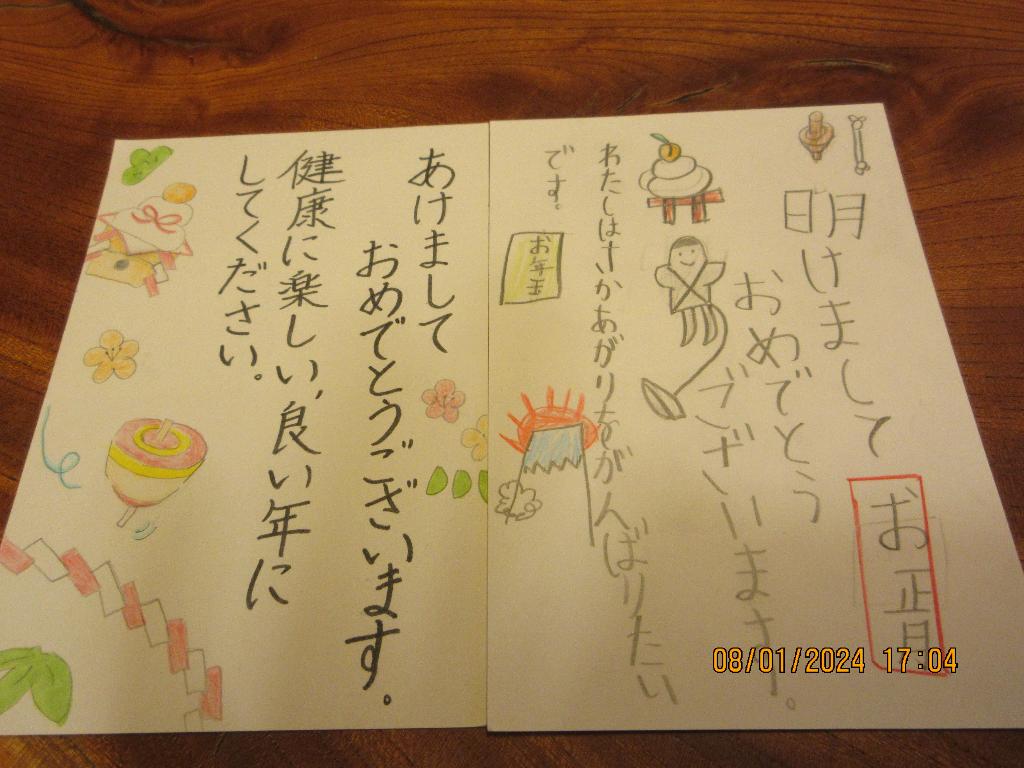 明けまして
おめでとう
ございます。
お正月
わたしはさかあがりをがんばりたい
です。
お年玉
あけまして
おめでとうございます。
健康に楽しい、良い年に
してください。
08/01/2024 17:04